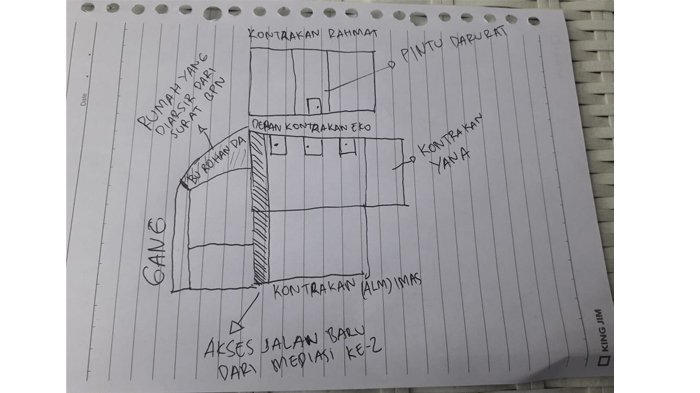 KONTRAKAN RAHMAT
PINTU DARURAT
RUMAH YANG
DIARSIR DARI
SURAT BPN
DEPAN KONTRAKAN EKO
BU ROHANDA
KONTRAKAN
YANA
GANG
KONTRAKAN (ALM) IMAS
AKSES JALAN BARU
DARI MEDIASI KE-2
Date
KING JIM